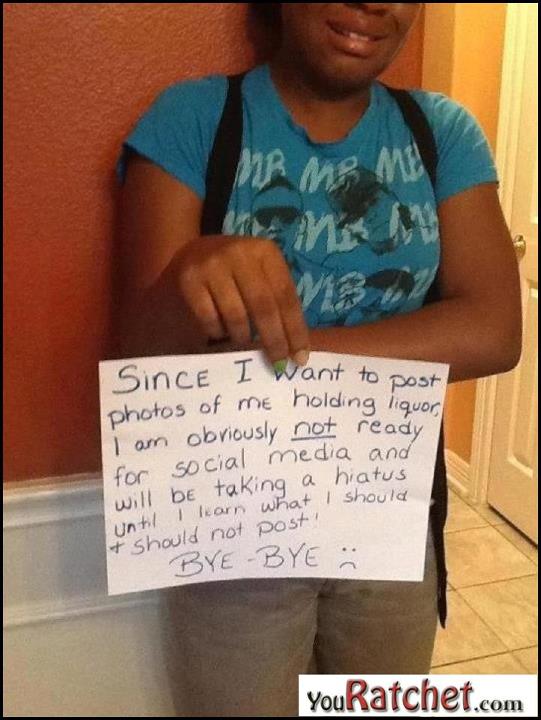 MB MB MB
MB MB
MB MB
SINCE I want to post
photos of me holding liquor,
I am obviously not ready
for social media and
will be taking a hiatus
until I learn what I should
+ should not post!
BYE-BYE :(
YouRatchet.com